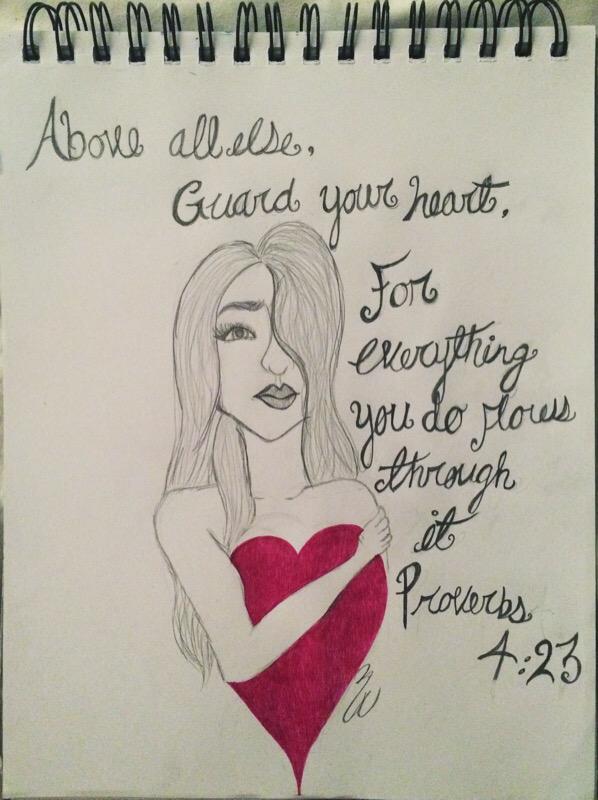 Above all else,
Guard your heart,
For
everything
you do flows
through
it
Proverbs
4:23